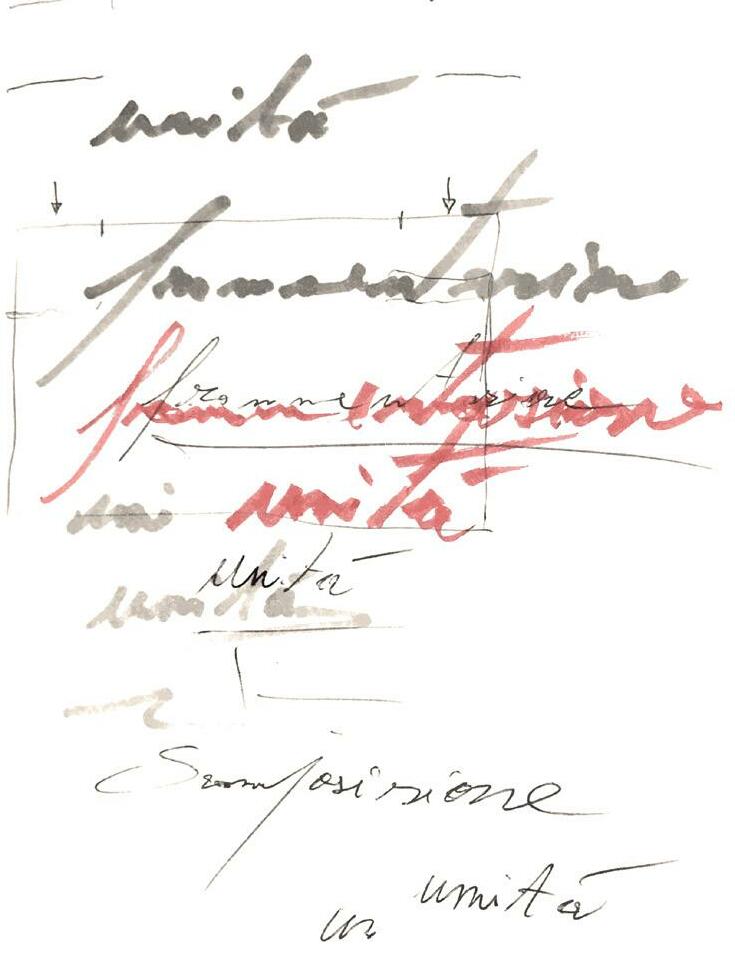 unità
frammentazione
frammentazione
frammentazione
uni unità
unità
unità
unità
un